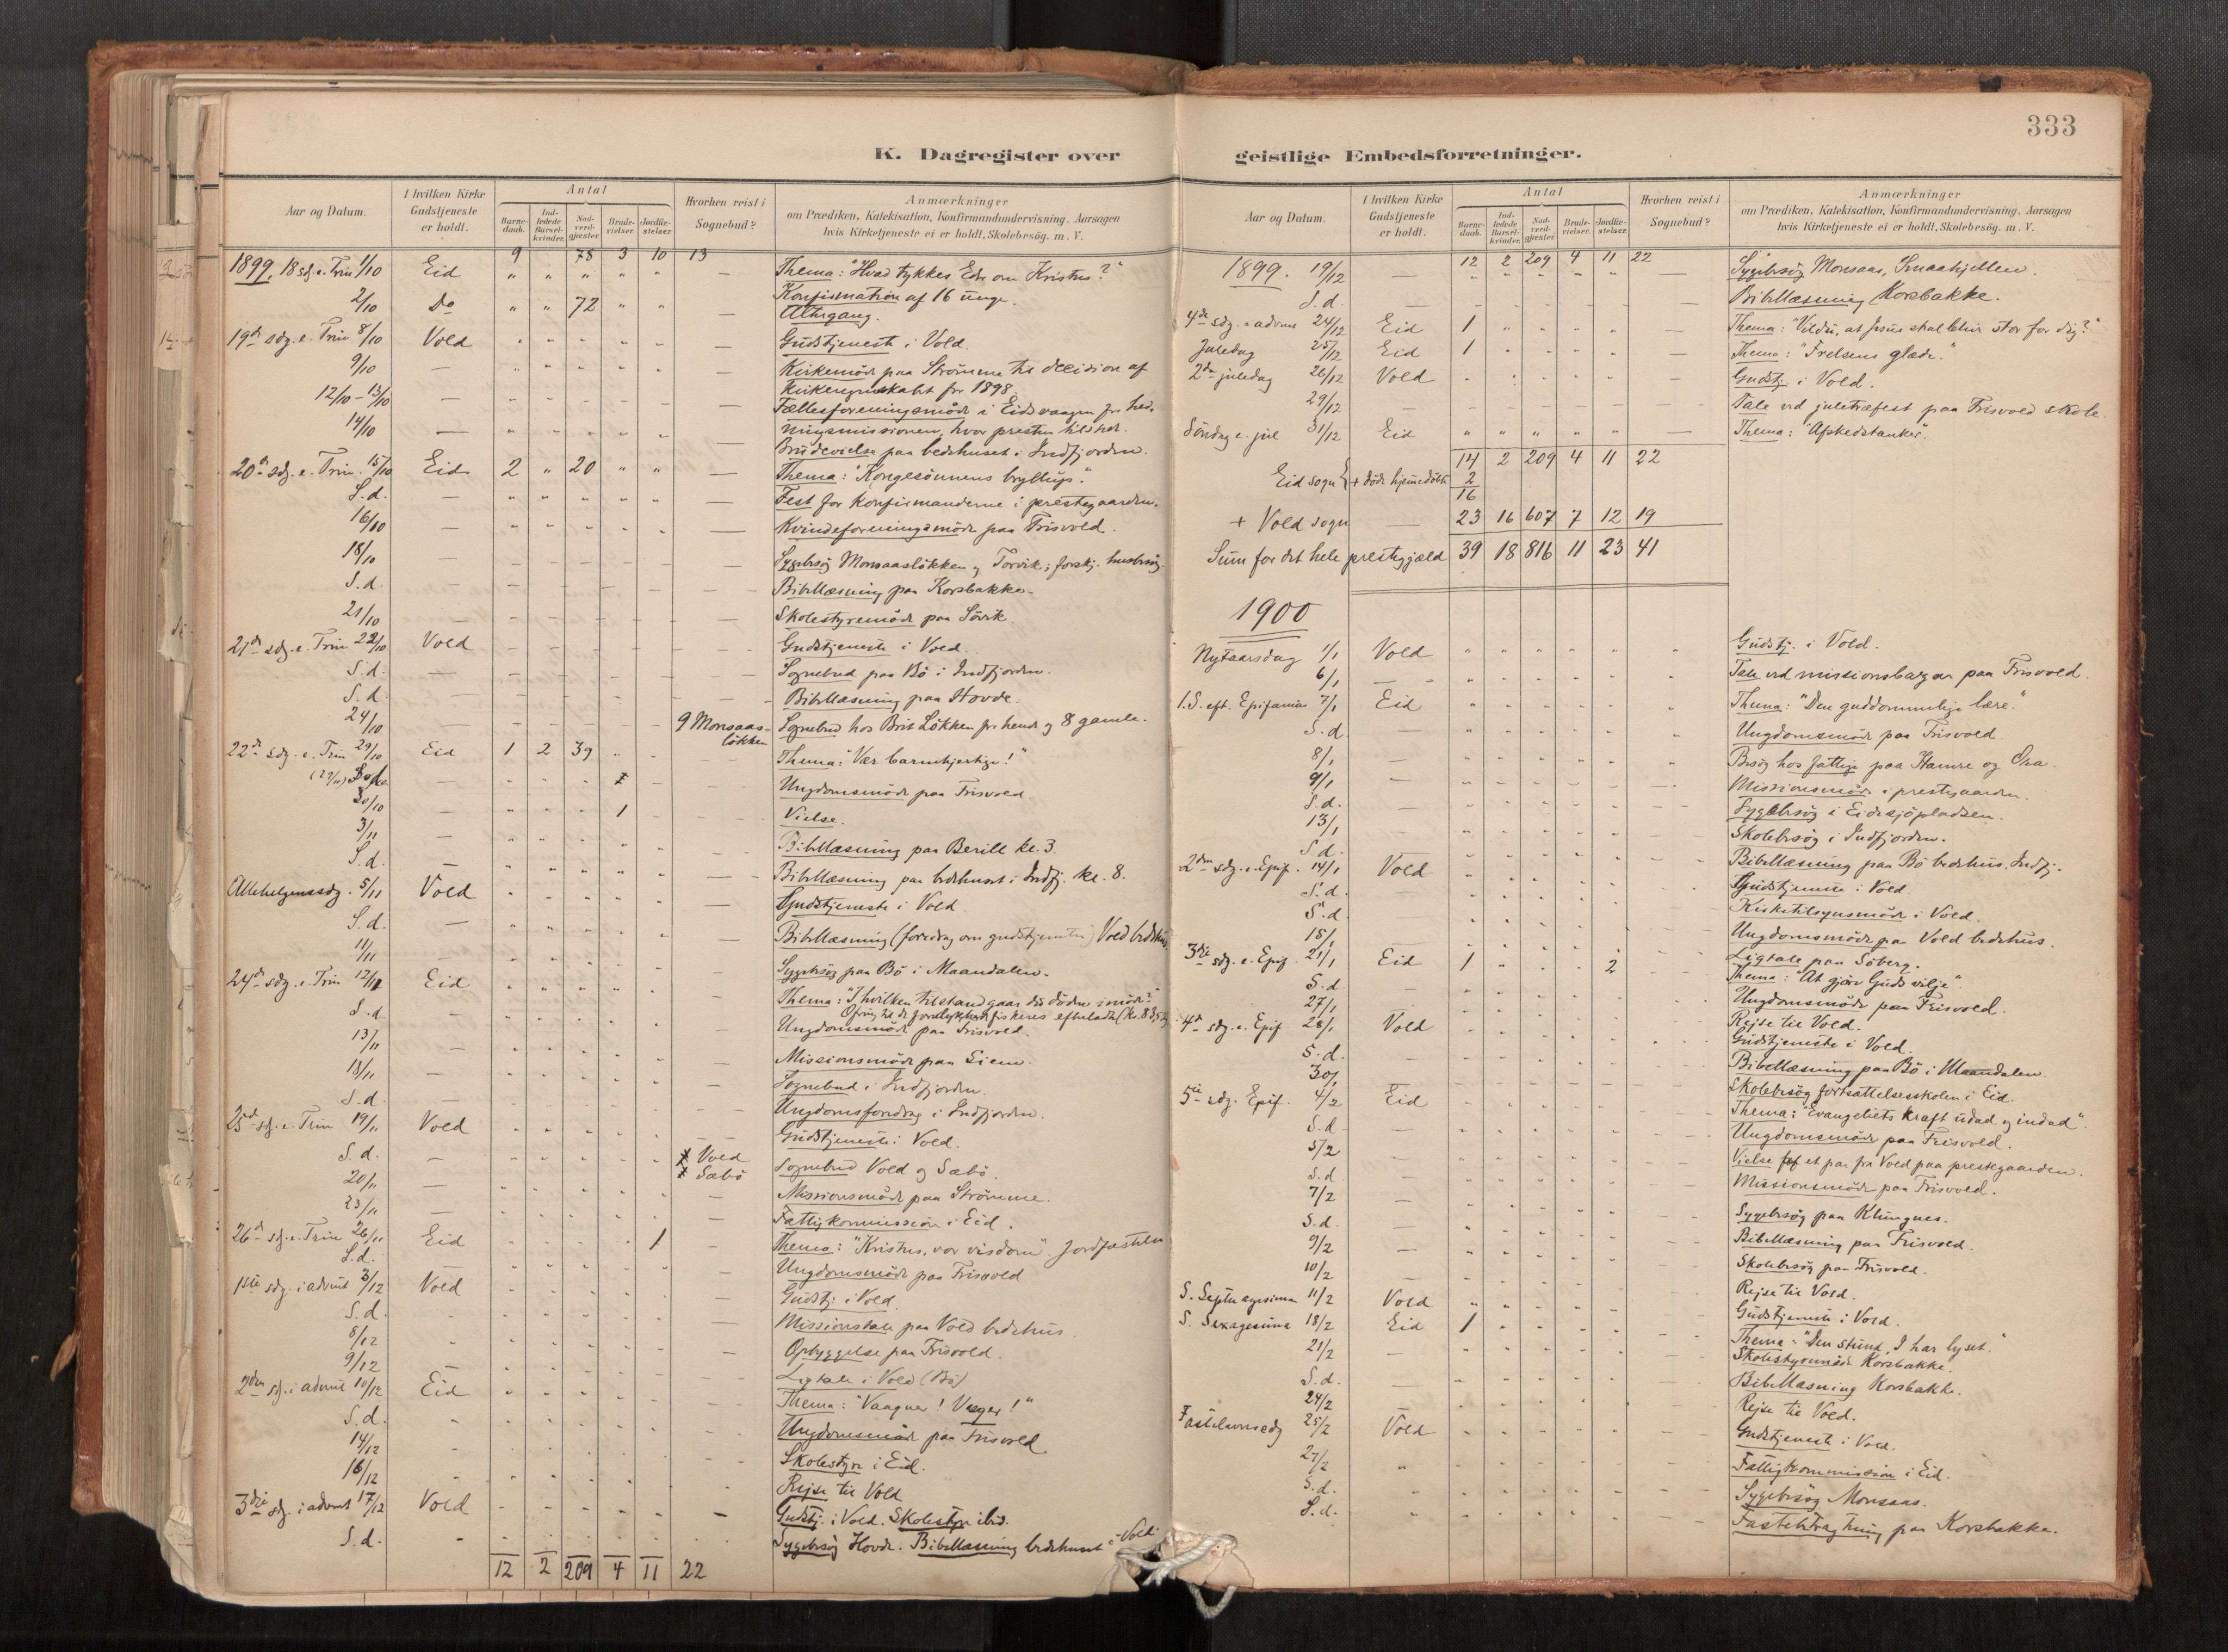 333
K. Dagregister over geistlige Embedsforretninger.
Aar og Datum. | I hvilken Kirke Gudstjeneste er holdt. | Antal | Barne-daab. | Ind-ledede Barsel-kvinder. | Nad-verd-gjæster. | Brude-vielser. | Jordfæ-stelser. | Hvorhen reist i Sognebud? | Anmærkninger om Prædiken, Katekisation, Konfirmandundervisning, Aarsagen hvis Kirketjeneste ei er holdt, Skolebesög. m. V.
9 | 78 | 3 | 10 | 13
1899. 18 sdg. e. Trin 1/10 Eid " " " " " — Thema: "Hvad tykkes Eder om Kristus?"
Konfirmation af 16 unge.
2/10 Do " " 72 " " — Altergang.
19de sdg. e. Trin 8/10 Vold — Gudstjeneste i Vold.
9/10 — Kirkemöde paa Strömme til decision af
kirkeregnskabet for 1898.
12/10 – 13/10 — Fællesforeningsmöde i Eidsvaagen for hed-
ningemissionen, hvor presten tilsted.
14/10 — Brudevielse paa bedehuset i Indfjorden.
20de sdg. e. Trin. 15/10 Eid 2 " 20 " " — Thema: "Kongesönnens bryllup".
S.d. — Fest for konfirmanderne i prestegaarden.
16/10 — Kvindeforeningsmöde paa Frisvold.
18/10 — Sygebesög Monsaaslökken og Torvik; forskj. husbesög.
S.d. — Bibellæsning paa Korsbakke.
21/10 — Skolestyremöde paa Sövik.
21de sdg. e. Trin 22/10 Vold — Gudstjeneste i Vold.
S.d. — Sognebud paa Bö i Indfjorden.
S.d. — Bibellæsning paa Hovde.
24/10 — 9 Monsaas-lökken Sognebud hos Brit Lökken for hende og 8 gamle.
22de sdg. e. Trin 29/10 Eid 1 2 39 Thema: "Vær barmhjertige!"
— Ungdomsmöde paa Frisvold.
30/10 — 1 Vielse.
3/11 — Bibellæsning paa Berild kl. 3.
S.d. — Bibellæsning paa bedehuset i Indfj. kl. 8.
Allehelgenssdg. 5/11 Vold — Gudstjeneste i Vold.
S.d. — Bibellæsning (foredrag om gudstjenesten) Vold bedehus
11/11 — Sygebesög paa Bö i Maandalen.
24de sdg. e. Trin 12/11 Eid — Thema: "I hvilken tilstand gaar du döden imöde?"
Ofring til de forulykkede fiskeres efterladte
S.d. — Ungdomsmöde paa Frisvold.
13/11 — Missionsmöde paa Liem.
18/11 — Sognebud i Indfjorden.
S.d. — Ungdomsforedrag i Indfjorden.
25de sdg. e. Trin 19/11 Vold — Gudstjeneste i Vold.
S.d. — Vold Sæbö Sognebud Vold og Sæbö.
20/11 — Missionsmöde paa Strömme.
23/11 — Fattigkommission i Eid.
26de sdg. e. Trin 26/11 Eid 1 — Thema: "Kristus, vor visdom". Jordfæstelse
S.d. — Ungdomsmöde paa Frisvold
1ste sdg. i advent 3/12 Vold — Gudstj. i Vold.
S.d. — Missionstale paa Vold bedehus.
8/12 — Opbyggelse paa Frisvold.
9/12 — Ligtale i Vold (Bö)
2den sdg. i advent 10/12 Eid Thema: "Vaagner! Vaager!"
S.d. Ungdomsmöde paa Frisvold
14/12 Skolestyre i Eid.
16/12 Rejse til Vold
3die sdg. i advent 17/12 Vold — Gudstj. i Vold. Skolestyre ibid.
S.d. Sygebesög Hovde. Bibellæsning bedehuset i Vold.
12 2 209 4 11 22
Aar og Datum. | I hvilken Kirke Gudstjeneste er holdt. | Antal | Barne-daab. | Ind-ledede Barsel-kvinder. | Nad-verd-gjæster. | Brude-vielser. | Jordfæ-stelser. | Hvorhen reist i Sognebud? | Anmærkninger om Prædiken, Katekisation, Konfirmandundervisning, Aarsagen hvis Kirketjeneste ei er holdt, Skolebesög. m. V.
12 2 209 4 11 22
1899. 19/12 — Sygebesög Monsaas, Smaahjellen.
S.d. — Bibellæsning Korsbakke.
4de sdg. i advent 24/12 Eid 1 — Thema: "Vil du, at Jesus skal blive stor for dig?"
Juledag 25/12 Eid 1 — Thema: "Frelsens glæde."
2den juledag 26/12 Vold — Gudstj. i Vold.
29/12 — Tale ved juletræfest paa Frisvold skole.
Söndag e. jul 31/12 Eid — Thema: "Afskedstanker".
14 2 209 4 11 22
Eid sogn + döde hjemmedöbte 2
16
+ Vold sogn 23 16 607 7 12 19
Sum for det hele prestegjæld 39 18 816 11 23 41
1900
Nytaarsdag 1/1 Vold Gudstj. i Vold.
6/1 — Tale ved missionsbazar paa Frisvold.
1. S. eft. Epifanias 7/1 Eid Thema: "Den guddommelige lære."
S.d. — Ungdomsmöde paa Frisvold.
8/1 — Besög hos fattige paa Hamre og Ora.
9/1 — Missionsmöde i prestegaarden.
S.d. — Sygebesög i Eidesjöpladsen.
13/1 — Skolebesög i Indfjorden.
S.d. — Bibellæsning paa Bö bedehus, Indfj.
2den sdg. e. Epif. 14/1 Vold — Gudstjeneste i Vold.
S.d. — Kirketilsynsmöde i Vold.
S.d. — Ungdomsmöde paa Vold bedehus.
18/1 — Ligtale paa Söberg.
3die sdg. e. Epif. 21/1 Eid 1 2 Thema: "At gjöre Guds vilje".
S.d. — Ungdomsmöde paa Frisvold.
27/1 — Rejse til Vold.
4de sdg. e. Epif 28/1 Vold Gudstjeneste i Vold.
S.d. — Bibellæsning paa Bö i Maandalen.
30/1 — Skolebesög fortsættelsesskolen i Eid.
5te sdg. Epif. 4/2 Eid Thema: "Evangeliets kraft udad og indad".
S.d. — Ungdomsmöde paa Frisvold.
5/2 — Vielse af et par fra Vold paa prestegaarden.
S.d. — Missionsmöde paa Frisvold.
7/2 — Sygebesög paa Klungnes.
S.d. — Bibellæsning paa Frisvold.
9/2 — Skolebesög paa Frisvold.
10/2 — Rejse til Vold.
S. Septuagesima 11/2 Vold Gudstjeneste i Vold.
S. Sexagesima 18/2 Eid 1 Thema: "Den stund, I har lyset."
21/2 — Skolestyremöde Korsbakke.
S.d. — Bibellæsning Korsbakke.
24/2 — Rejse til Vold.
Fastelavnssdg 25/2 Vold Gudstjeneste i Vold.
27/2 Fattigkommission i Eid.
S.d. Sygebesög Monsaas.
S.d. Fastebetragtning paa Korsbakke.